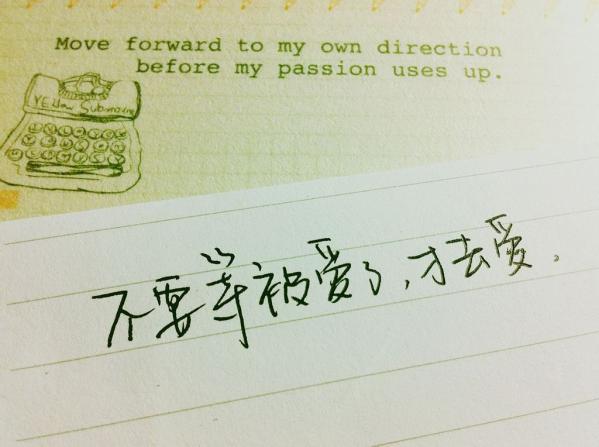 Move forward to my own direction
before my passion uses up.
YEllow Submarine
不要等被愛了,才去愛。